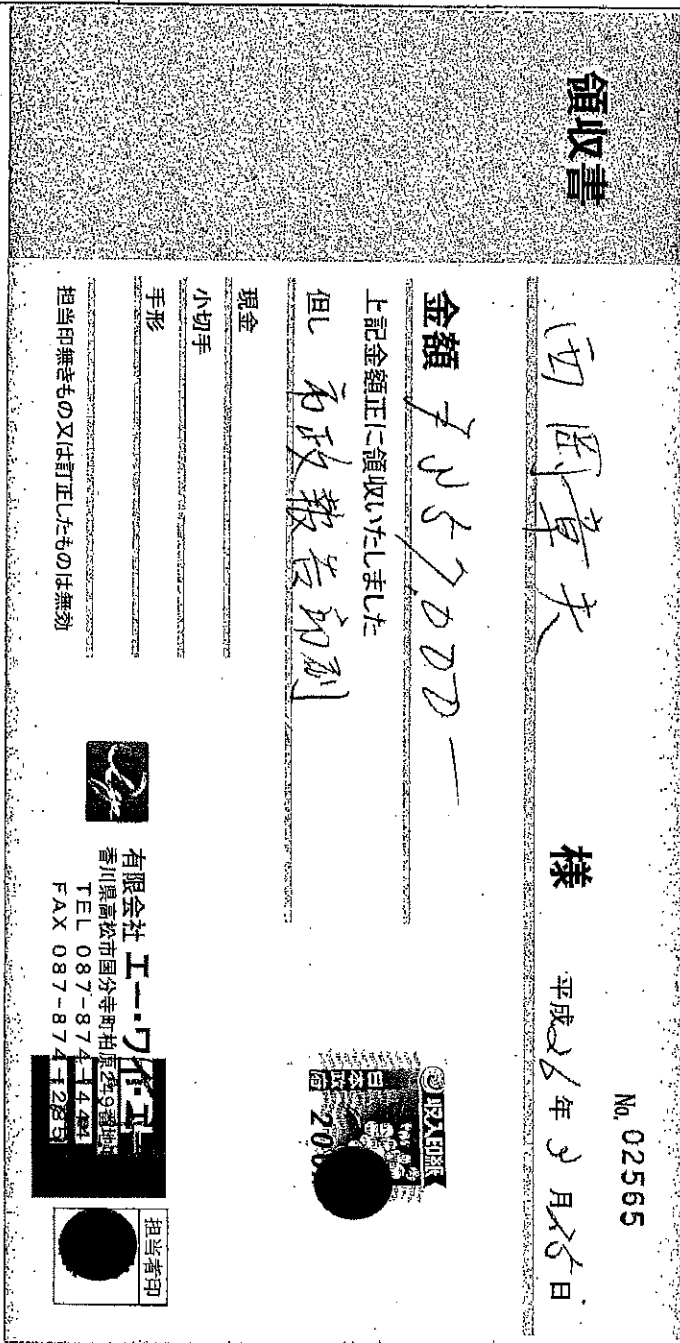 領収書
No. 02565
平成26年3月25日
西岡章夫 様
金額 ¥257,000-
上記金額正に領収いたしました
但し 市政報告印刷
現金
小切手
手形
担当印無きもの又は訂正したものは無効
収入印紙
日本政府
200
有限会社 エー・ワイ・エー
香川県高松市国分寺町柏原249番地
TEL 087-874-1444
FAX 087-874-1285
担当者印